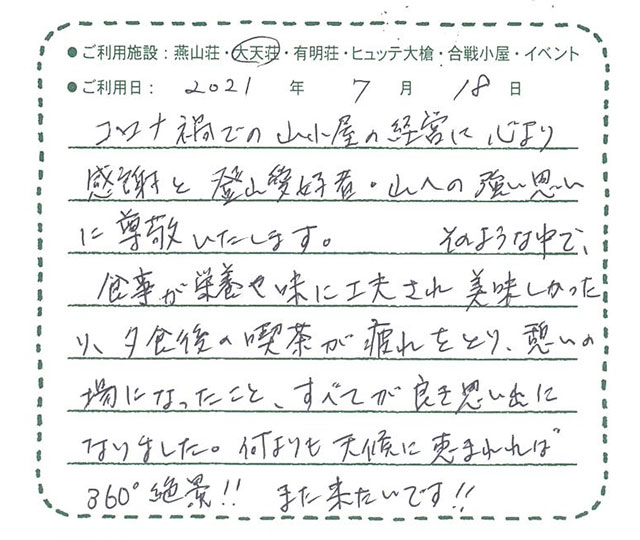 ● ご利用施設：燕山荘・大天荘・有明荘・ヒュッテ大槍・合戦小屋・イベント
● ご利用日： 2021 年 7 月 18 日
コロナ禍での山小屋の経営に心より
感謝と登山愛好者・山への強い思い
に尊敬いたします。 そのような中で、
食事が栄養や味に工夫され美味しかった
り、夕食後の喫茶が疲れをとり、憩いの
場になったこと、すべてが良き思い出に
なりました。何よりも天候に恵まれれば
360°絶景!! また来たいです!!